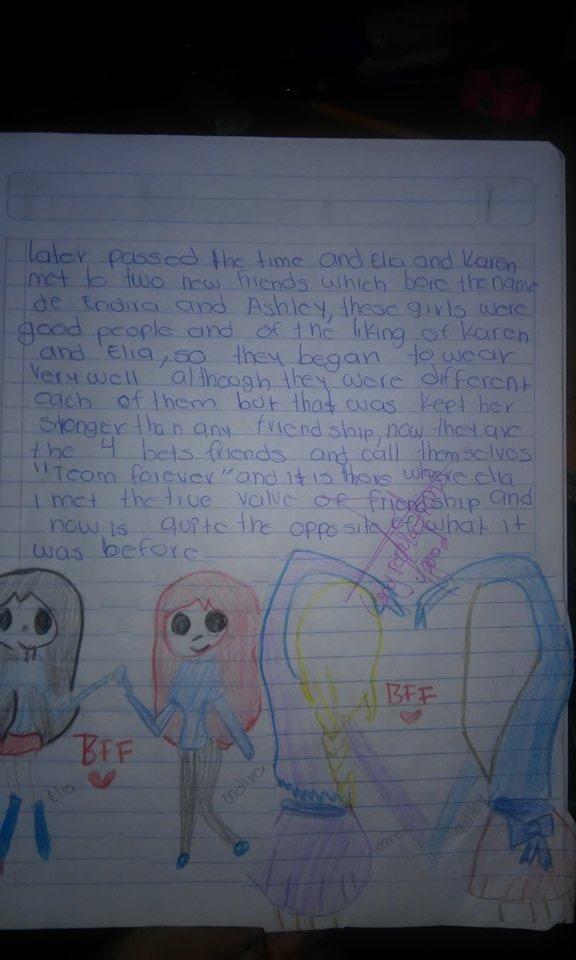 Later passed the time and Ella and Karen
met to two new friends which bore the name
de Endira and Ashley, these girls were
good people and of the liking of Karen
and Ella, so they began to wear
very well although they were different
each of them but that was kept her
stonger than any friendship, now they are
the 4 bets friends and call themselves
"Team forever" and it is there where ella
I met the true value of friendship and
now is quite the opposite of what it
was before
BFF
BFF
Ella
Endira